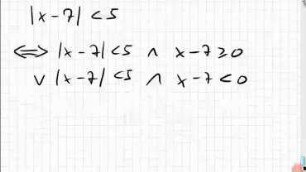 |x-7| <5
⟺ |x-7| <5 ∧ x-7≥0
∨ |x-7| <5 ∧ x-7<0